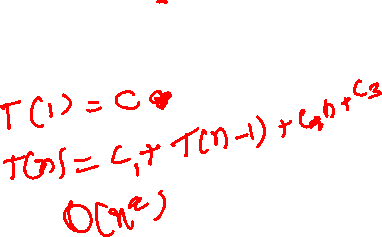 T(1) = C
T(n) = C₁ + T(n-1) + C₂n + C₃
O(n²)